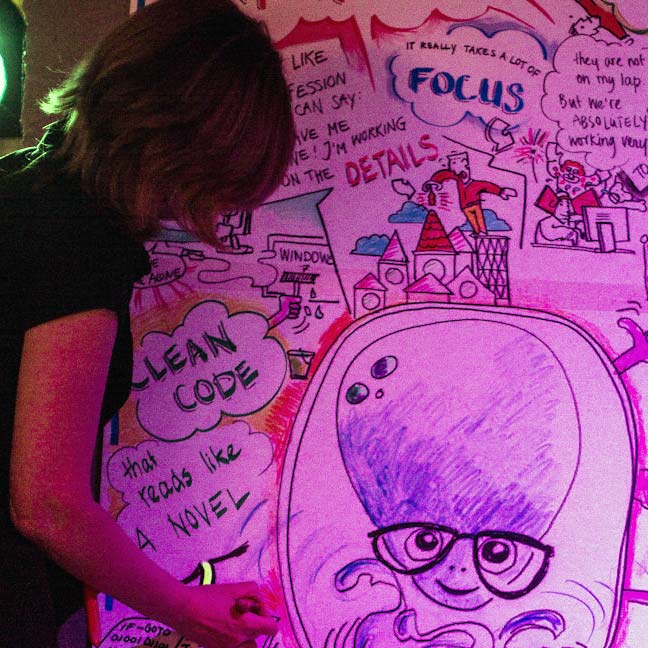 LIKE
FESSION
CAN SAY:
AVE ME
! I'M WORKING
ON THE DETAILS
IT REALLY TAKES A LOT OF
FOCUS
they are not
on my lap.
But we're
ABSOLUTELY
working very
TO
WINDOW
ALONE
CLEAN
CODE
that
reads like
A NOVEL
IF-GOTO